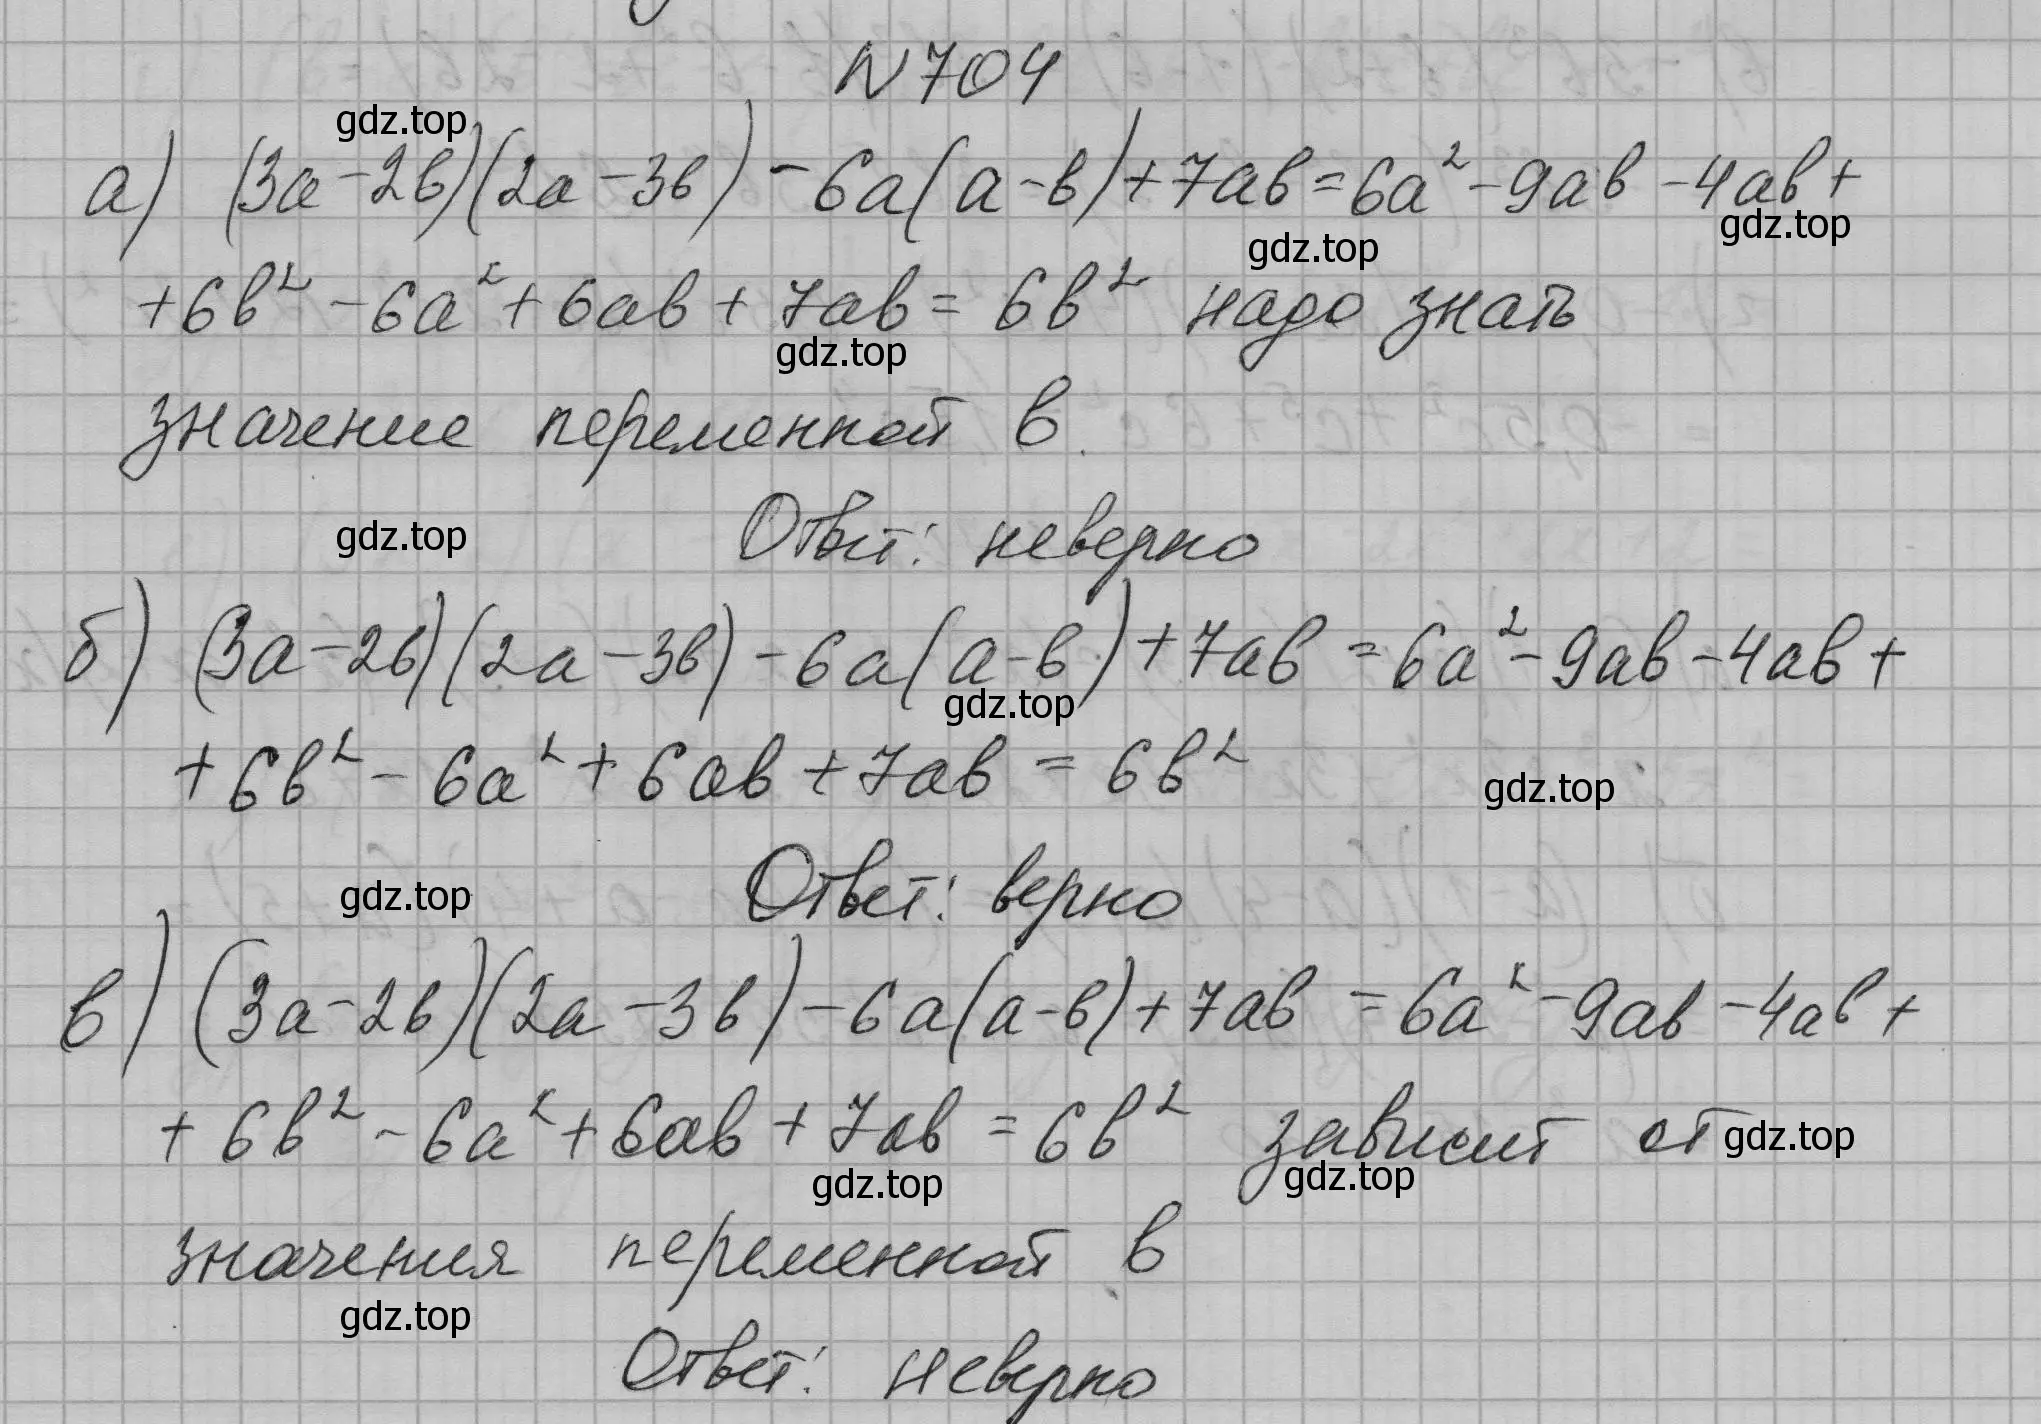 N704
gdz.top
а) (3a-2b)(2a-3b)-6a(a-b)+7ab=6a²-9ab-4ab+
gdz.top
gdz.top
+6b²-6a²+6ab+7ab=6b² надо знать
gdz.top
значение переменной b.
gdz.top
Ответ: неверно
б) (3a-2b)(2a-3b)-6a(a-b)+7ab=6a²-9ab-4ab+
gdz.top
+6b²-6a²+6ab+7ab=6b²
gdz.top
gdz.top
Ответ: верно
в) (3a-2b)(2a-3b)-6a(a-b)+7ab=6a²-9ab-4ab+
+6b²-6a²+6ab+7ab=6b² зависит от
gdz.top
gdz.top
gdz.top
значения переменной b
gdz.top
Ответ: неверно